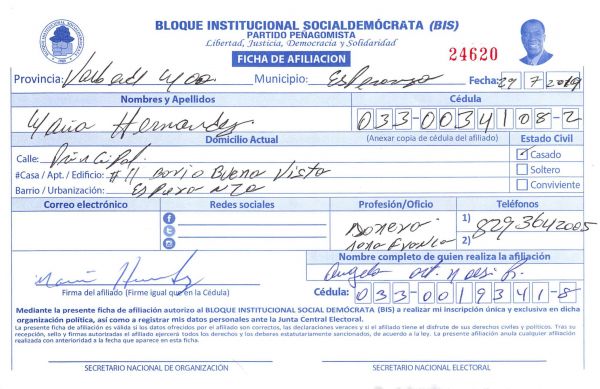 BLOQUE INSTITUCIONAL SOCIALDEMÓCRATA (BIS)
PARTIDO PEÑAGOMISTA
Libertad, Justicia, Democracia y Solidaridad
FICHA DE AFILIACION
24620
Provincia: Municipio: Esperanza Fecha: 29 7 2019
Nombres y Apellidos Cédula
Maria Hernandez 033-0034108-2
Domicilio Actual (Anexar copia de cédula del afiliado) Estado Civil
Calle: Principal Casado
#Casa / Apt. / Edificio: #11 Barrio Buena Vista Soltero
Barrio / Urbanización: Conviviente
Correo electrónico Redes sociales Profesión/Oficio Teléfonos
1) 8293642005
2)
Nombre completo de quien realiza la afiliación
Angela
Firma del afiliado (Firme igual que en la Cédula) Cédula: 033-0019341-8
Mediante la presente ficha de afiliación autorizo al BLOQUE INSTITUCIONAL SOCIAL DEMÓCRATA (BIS) a realizar mi inscripción única y exclusiva en dicha
organización política, así como a registrar mis datos personales ante la Junta Central Electoral.
La presente ficha de afiliación es válida si los datos ofrecidos por el afiliado son correctos, las declaraciones veraces y si el afiliado tiene el disfrute de sus derechos civiles y políticos. Tras su
recepción, sello y firmas autorizadas el afiliado ejercerá todos los derechos y los deberes estatutariamente sancionados, de acuerdo a la ley. La presente afiliación anula cualquier afiliación
realizada con anterioridad a la fecha que aparece en esta ficha.
SECRETARIO NACIONAL DE ORGANIZACIÓN SECRETARIO NACIONAL ELECTORAL